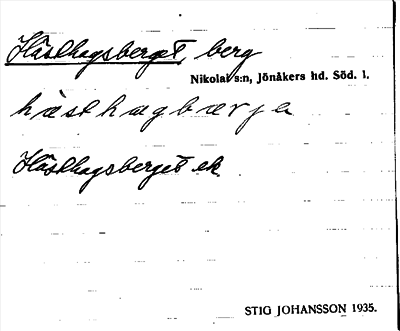 Hästhagsberget, berg
Nikolai s:n, Jönåkers hd. Söd. l.
hästhagbærjə
Hästhagsberget ek.
STIG JOHANSSON 1935.